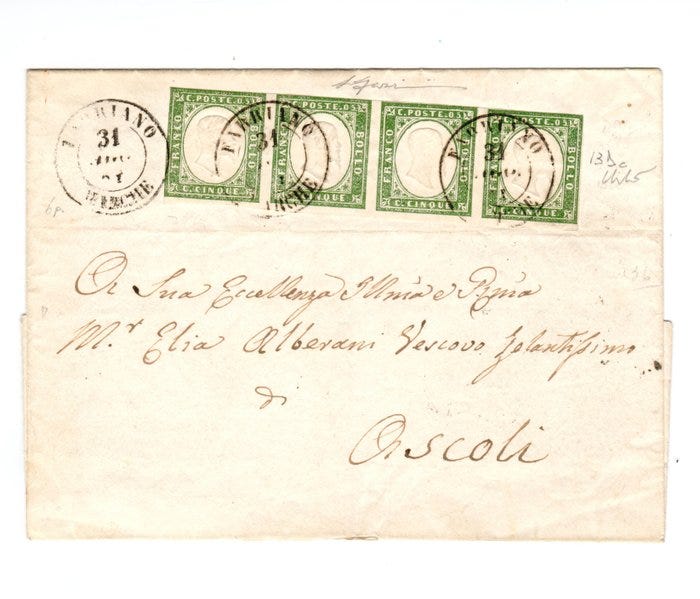 FABRIANO
31
61
MARCHE
C. POSTE. 05
FRANCO
BOLLO
C. CINQUE
FABRIANO
31
MARCHE
C. POSTE. 05
FRANCO
BOLLO
C. CINQUE
C. POSTE. 05
FRANCO
BOLLO
C. CINQUE
FABRIANO
31
C. POSTE. 05
FRANCO
BOLLO
C. CINQUE
6p.
A Sua Eccellenza Illma e Rma
Mr. Elia Alberani Vescovo Zelantissimo
di
Ascoli